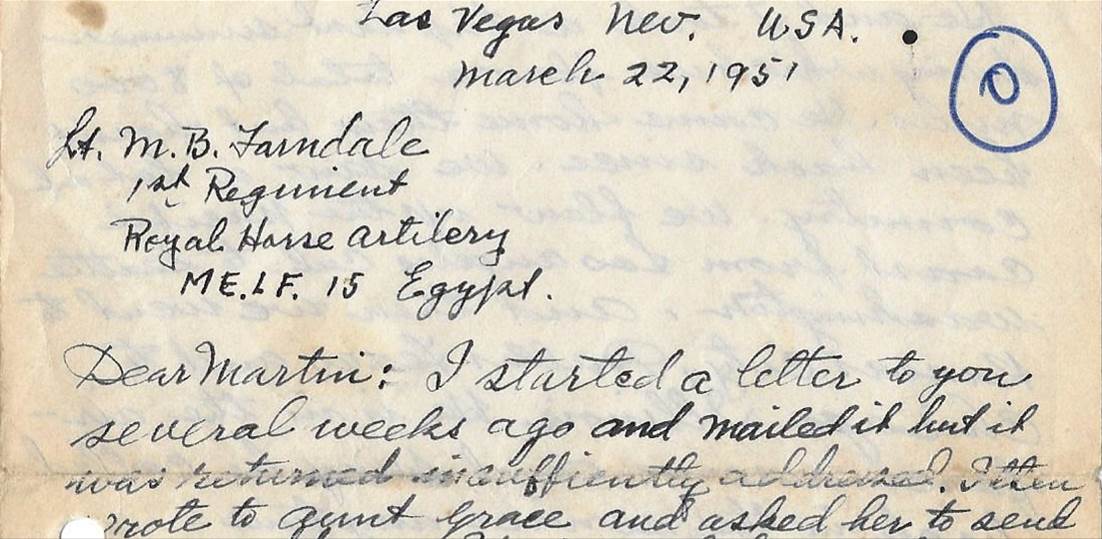 Las Vegas Nev. USA.
March 22, 1951
0
Lt. M. B. Farndale
1st Regiment
Royal Horse Artilery
M E. L F. 15 Egypt.
Dear Martin: I started a letter to you
several weeks ago and mailed it but it
was returned insufficiently addressed. I then
wrote to Aunt Grace and asked her to send